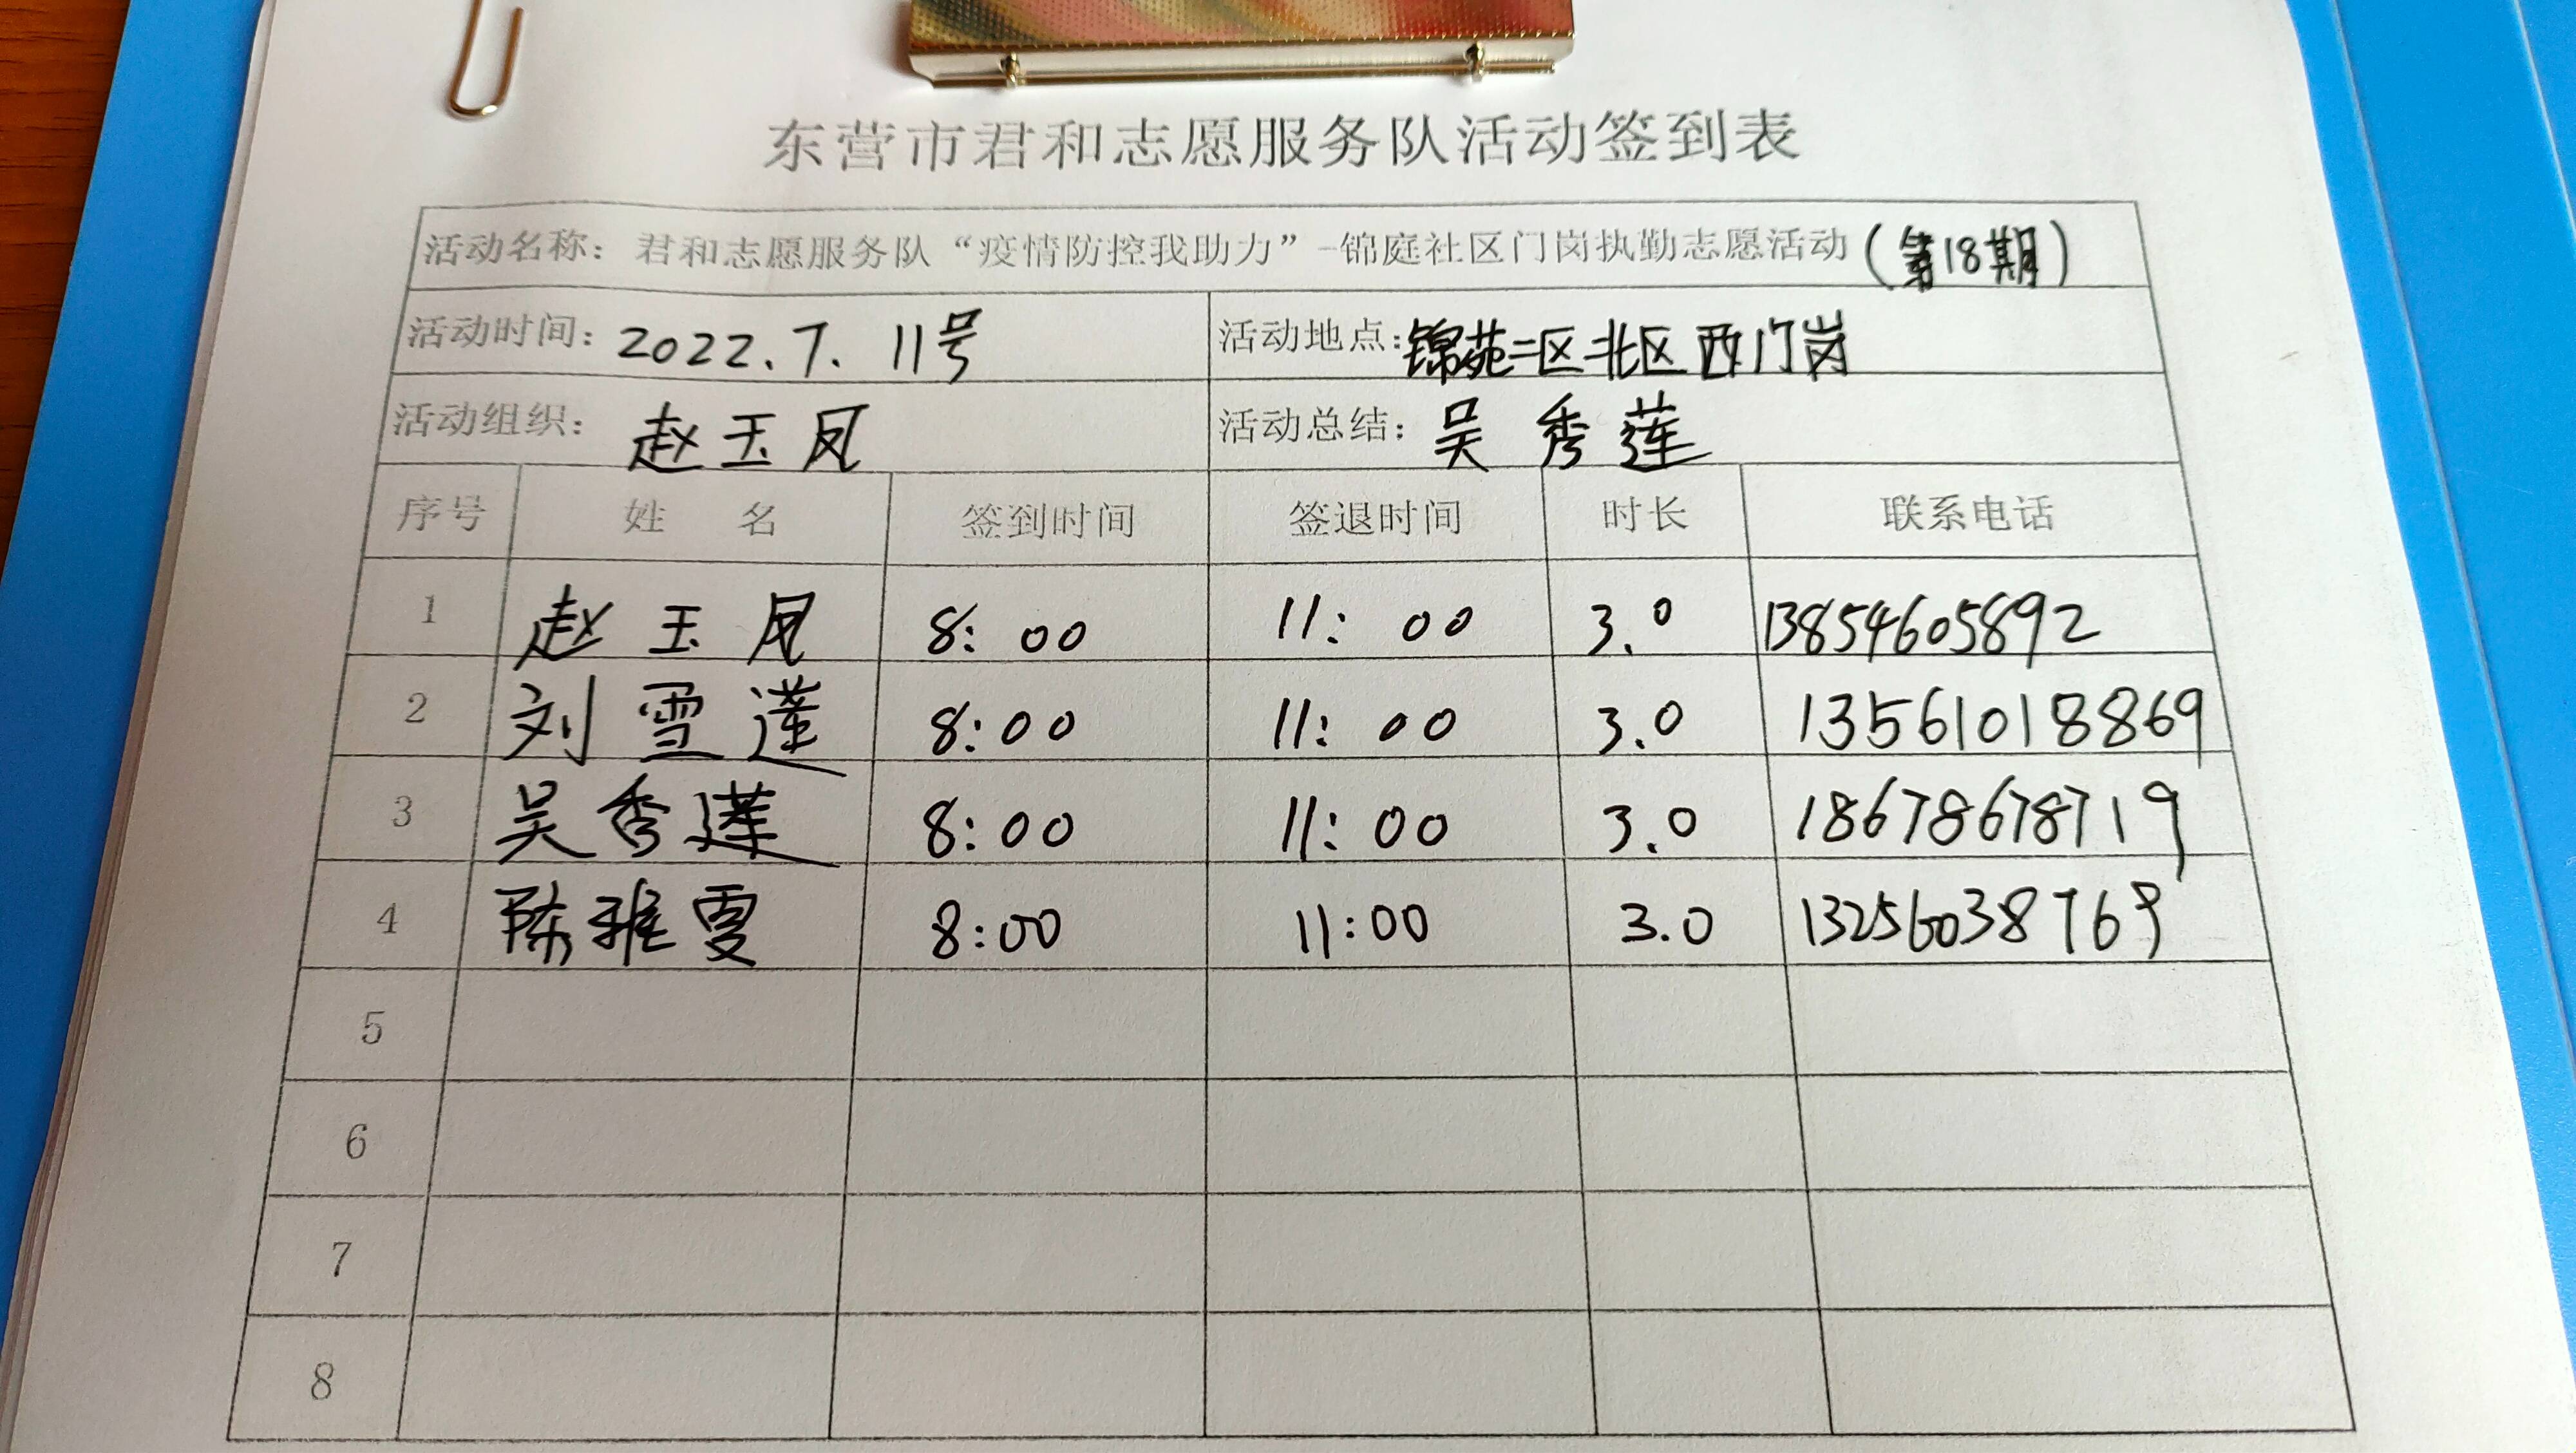 东营市君和志愿服务队活动签到表
活动名称：君和志愿服务队“疫情防控我助力”-锦庭社区门岗执勤志愿活动（第18期）
活动时间：2022.7.11号 活动地点：锦苑二区北区西门岗
活动组织：赵玉凤 活动总结：吴秀莲
序号 姓名 签到时间 签退时间 时长 联系电话
1 赵玉凤 8:00 11:00 3.0 13854605892
2 刘雪莲 8:00 11:00 3.0 13561018869
3 吴秀莲 8:00 11:00 3.0 18678678719
4 陈雅雯 8:00 11:00 3.0 13256038769
5
6
7
8